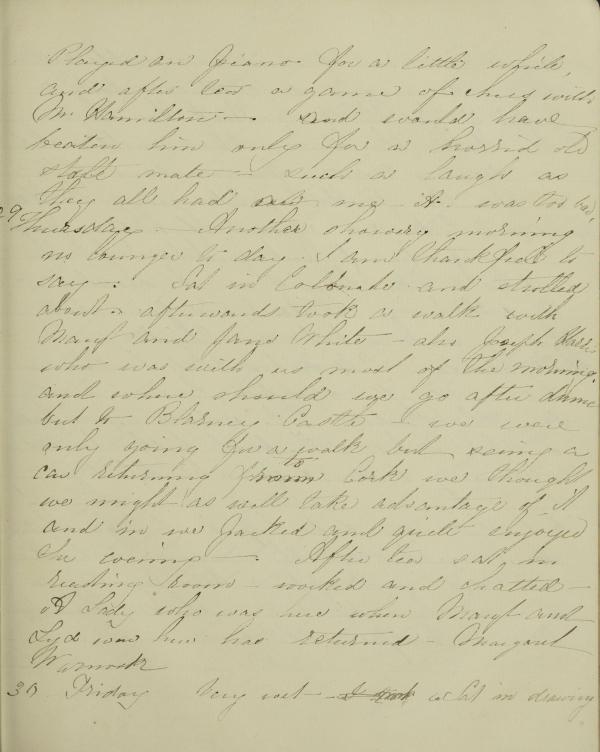 Played on piano for a little while,
and after tea a game of chess with
Mr. Hamilton - and would have
beaten him only for a horrid old
stale mate - such a laugh as
they all had at me - it was too bad,
29 Thursday - Another showery morning
no lounger to day - I am thankful to
say - Sat in Colonade and strolled
about - afterwards took a walk with
Margt and Jane White - also Joseph Harris
who was with us most of the morning,
and where should we go after dinner
but to Blarney Castle - we were
only going for a walk but seeing a
car returning to Cork we thought
we might as well take advantage of it
and in we packed and quite enjoyed
the evening - After tea sat in
reading room - worked and chatted -
A Lady who was here when Margt and
Lyd were here has returned - Margaret
30 Friday Very wet - Sat in drawing